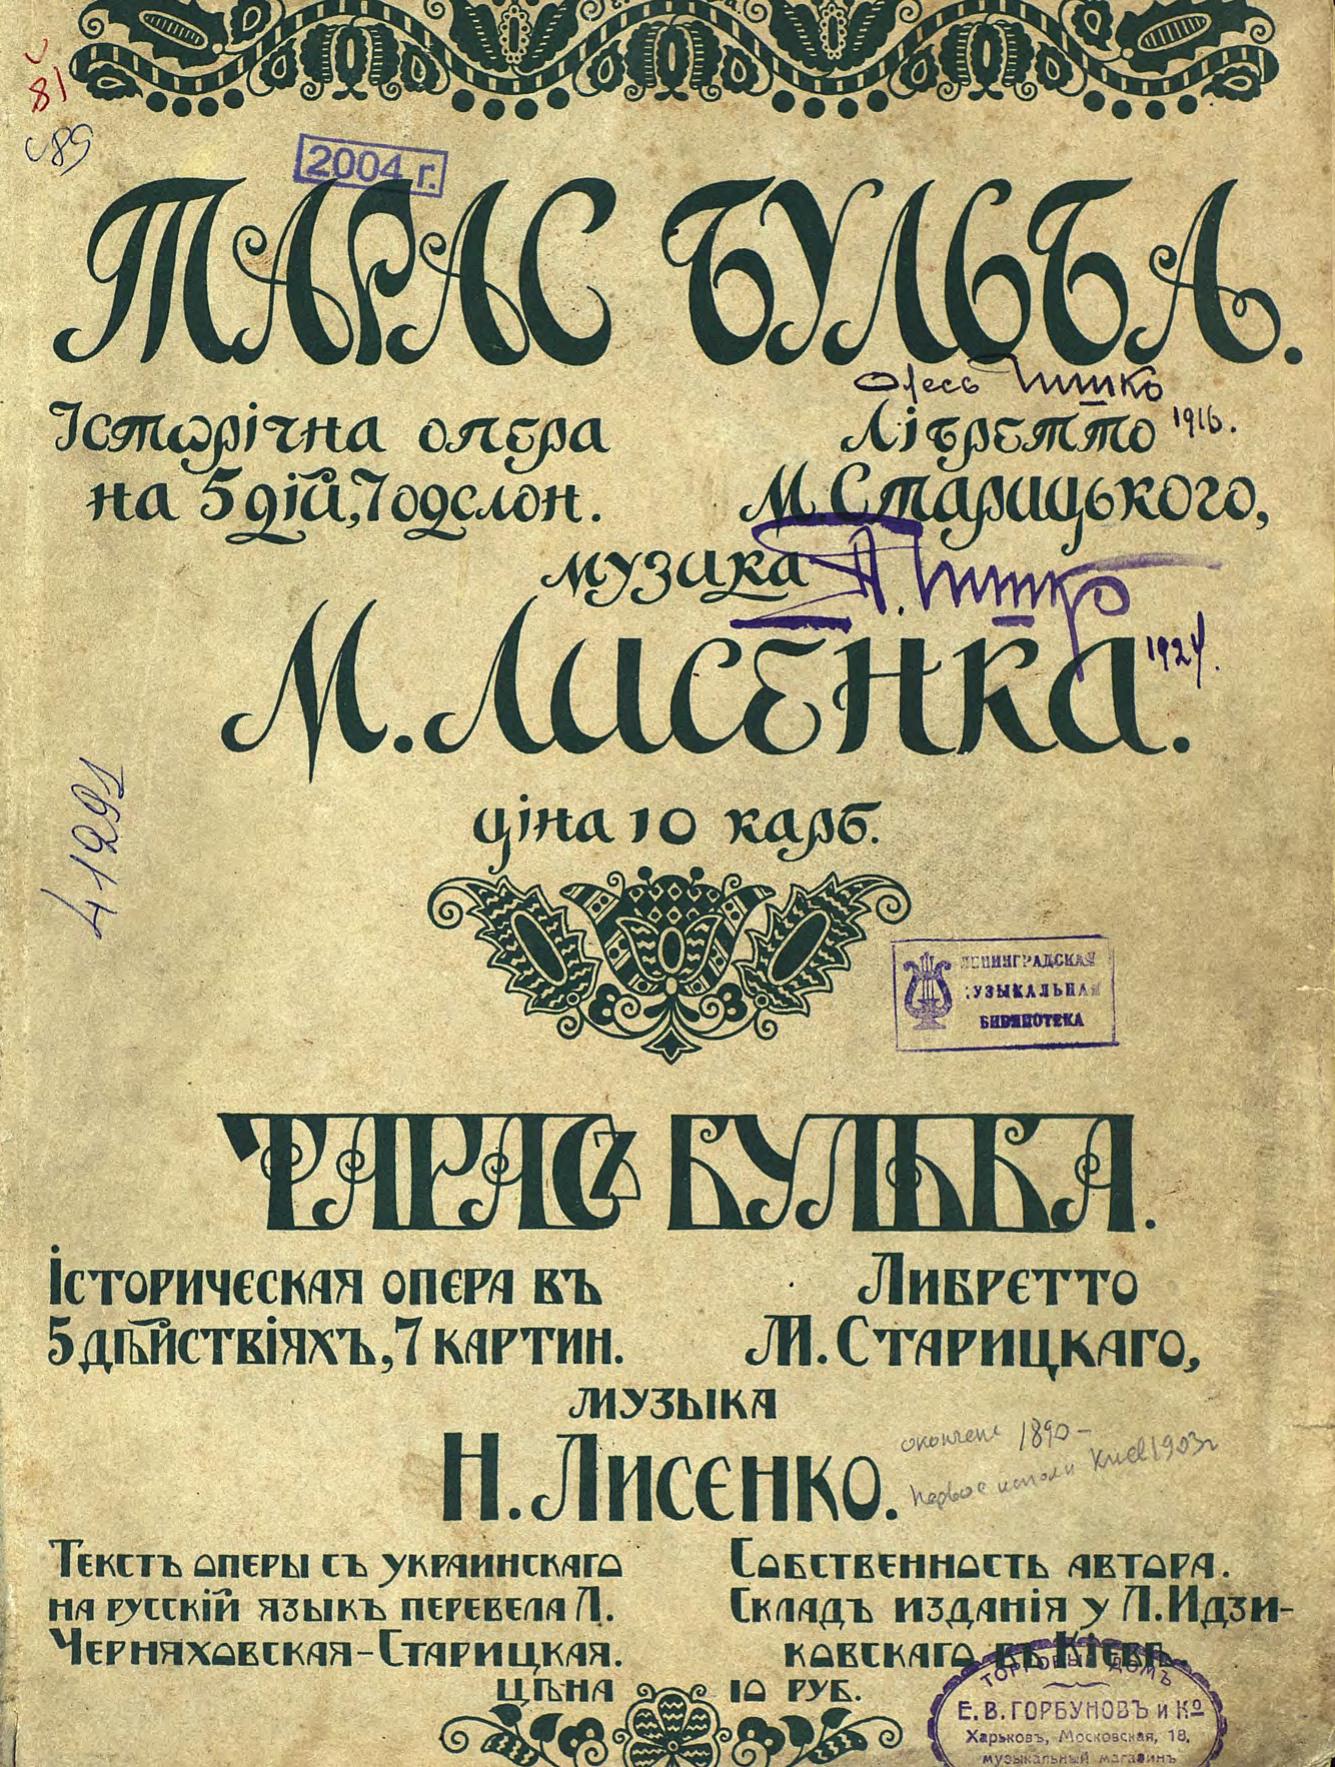 81
89
2004 г.
ТАРАС БУЛЬБА.
Олесь Чишко
1916.
Історічна опера
на 5 дій, 7 одслон.
Лібретто
М. Старицького,
музика
А. Чишко
1924.
М. Лисенка.
ціна 10 карб.
41291
ЛЕНИНГРАДСКАЯ
МУЗЫКАЛЬНАЯ
БИБЛИОТЕКА
ТАРАСЪ БУЛЬБА.
Історическая опера въ
5 дѣйствіяхъ, 7 картин.
Либретто
М. Старицкаго,
музыка
Н. Лисенко.
окончена 1890 –
первое исполн Киев 1903 г
Текстъ оперы съ украинскаго
на русскій языкъ перевела Л.
Черняховская-Старицкая.
Собственность автора.
Складъ изданія у Л. Идзи-
ковскаго въ Кіевѣ.
Цѣна 10 руб.
ТОРГОВЫЙ ДОМЪ
Е. В. ГОРБУНОВЪ и Кº
Харьковъ, Московская, 18,
музыкальный магазинъ